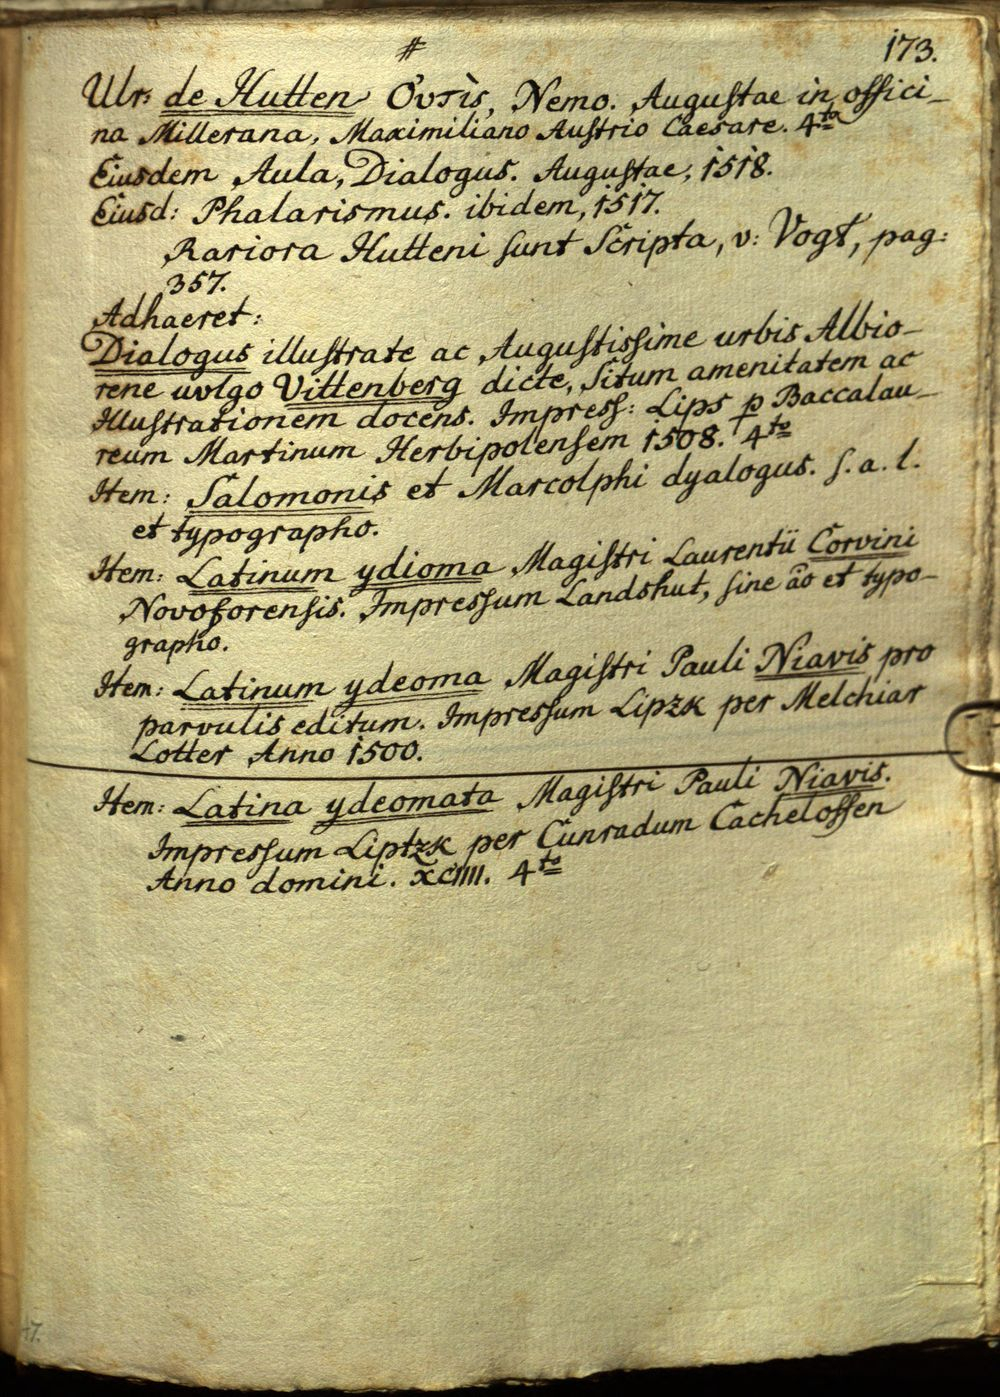 #
173.
Ulr: de Hutten Οὖτις, Nemo. Augustae in offici-
na Millerana, Maximiliano Austrio Caesare. 4to
Eiusdem Aula, Dialogus. Augustae, 1518.
Eiusd: Phalarismus. ibidem, 1517.
Rariora Hutteni sunt Scripta, v: Vogt, pag:
357.
Adhaeret:
Dialogus illustrate ac Augustissime urbis Albio-
rene uvlgo Vittenberg dicte, Situm amenitatem ac
Illustrationem docens. Impress: Lips p Baccalau-
reum Martinum Herbipolensem 1508. 4to
Item: Salomonis et Marcolphi dyalogus. s. a. l.
et typographo.
Item: Latinum ydioma Magistri Laurentii Corvini
Novoforensis. Impressum Landshut, sine ao et typo-
grapho.
Item: Latinum ydeoma Magistri Pauli Niavis pro
parvulis editum. Impressum Lipzk per Melchiar
Lotter Anno 1500.
Item: Latina ydeomata Magistri Pauli Niavis.
Impressum Liptzk per Cunradum Cachelossen
Anno domini. XCIIII. 4to